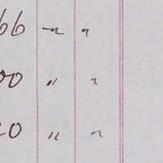 66 " "
00 " "
20 " "